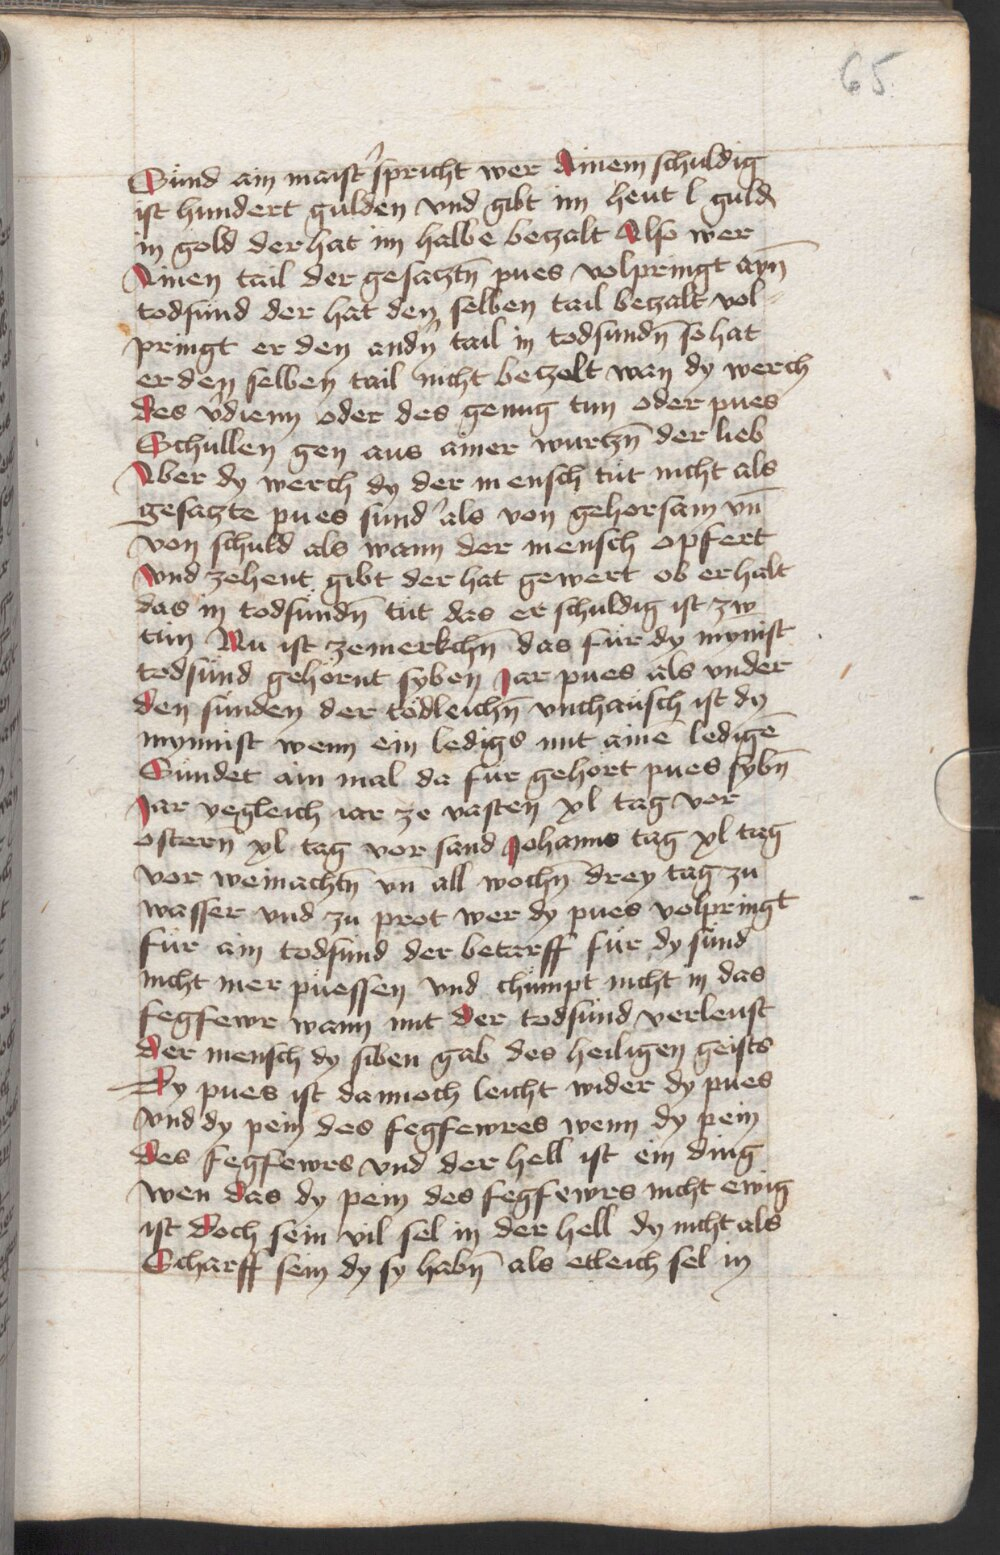 65
Sünd ain maist' spricht wer Ainem schuldig
ist hundert gulden vnd gibt im heut l guld
in gold der hat im halbe betzalt Also wer
Ainen tail der gesatztn̄ pues volpringt ayn̄
todsünd der hat den selben tail betzalt vol-
pringt er den andn̄ tail in todsündn̄ so hat
er den selben tail nicht betzelt wan dy werch
des v'dienn oder des genug tun oder pues
Schullen gen aus ainer wurtzn̄ der lieb
Aber dy werch dy der mensch tüt nicht als
gesatzte pues sund' als von gehorsam vn̄
von schuld als wann der mensch opfert
vnd zehent gibt der hat gewert ob er halt
das in todsündn̄ tüt das er schuldig ist zw
tün Nu ist zemerkchn̄ das für dy mynist
todsünd gehörnt syben Jar pues als vnder
den sünden der tödleichn̄ vnchaüsch ist dy
mynnist wenn ein ledigs mit aine̅ ledige̅
Sündet ain mal da für gehört pues sybn̄
Jar yegleich iar ze vasten xl tag vor
ostern̄ xl tag vor sand Johanns tag xl tag
vor weinachtn̄ vn̄ all wochn̄ drey tag zu
wasser vnd zu prot wer dy pues volpringt
für ain todsünd der betarff für dy sünd
nicht mer püessen vnd chümpt nicht in das
fegfewr wann mit der todsünd verleust
der mensch dy siben gab des heiligen geists
Dy pues ist dannoch leicht wider dy pues
vnd dy pein des fegfewres wenn dy pein
des fegfewrs vnd der hell ist ein ding
wen das dy pein des fegfewrs nicht ewig
ist doch sein vil sel in der hell dy nicht als
Scharff sein dy sy habn̄ als etleich sel in